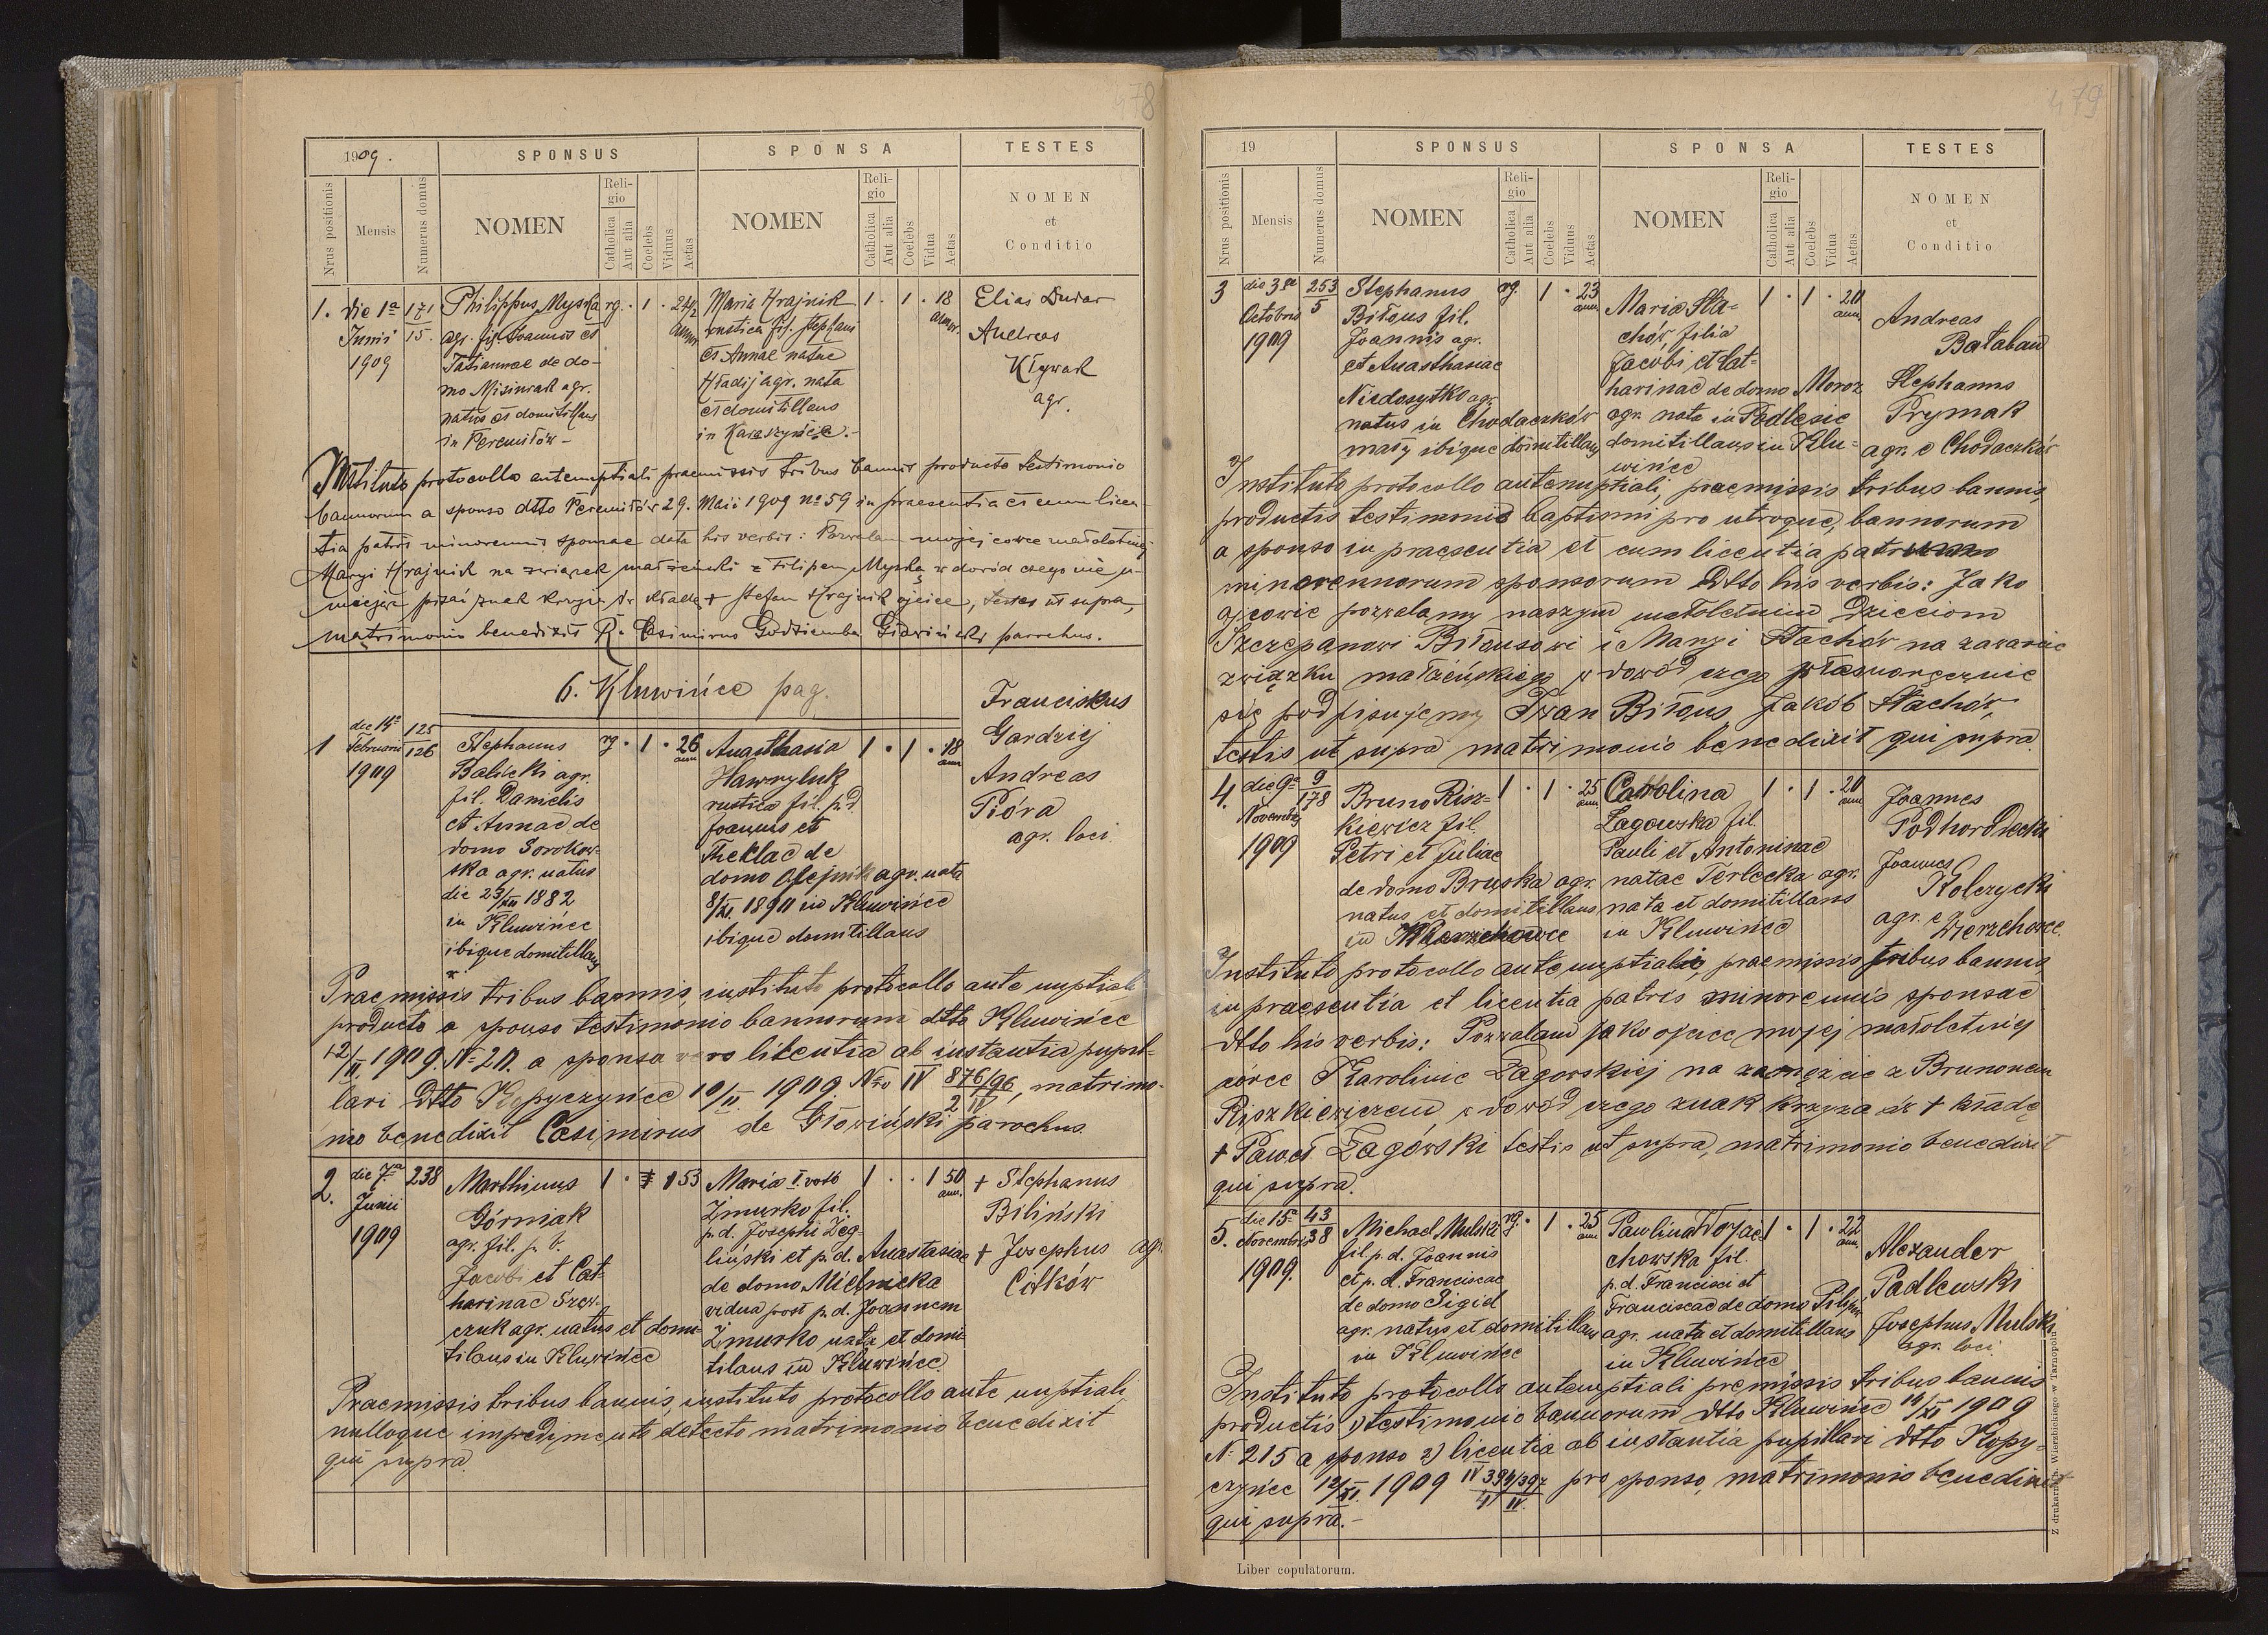 478
1909.
SPONSUS
SPONSA
TESTES
Nrus positionis
Mensis
Numerus domus
NOMEN
Religio
Catholica
Aut alia
Coelebs
Viduus
Aetas
NOMEN
Religio
Catholica
Aut alia
Coelebs
Vidua
Aetas
NOMEN
et
Conditio
1. die 1a Junii 1909
171
15.
Philippus Myszka
agr. fil. Joannis et
Tatiannae de do-
mo Misiurak agr.
natus et domitillans
in Peremiłów -
rg. 1 24 1/2 ann.
Maria Hrajnik
rustica fil. Stephani
et Annae natae
Hładij agr. nata
et domitillans
in Karaszyńce.-
1 1 18
Elias Dudar
Andreas
Kływak
agr.
Instituto protocollo antenuptiali praemissis tribus bannis producto testimonio
bannorum a sponso dtto Peremiłów 29. Maii 1909 No 59 in praesentia et cum licen-
tia patris minorennis sponsae data his verbis: Pozwalam mojej córce małoletniej
Maryi Hrajnik na związek małżeński z Filipem Myszką w dowód czego nie u-
miejąc pisać znak krzyża św. kładę + Stefan Hrajnik ojciec, testes ut supra,
matrimonio benedixit R. Casimirus Godziemba Głowiński parochus.
6. Kluwińce pag.
1
die 14a
Februarii
1909
125
126
Stephanus
Balicki agr.
fil. Danielis
et Annae de
domo Sorokow-
ska agr. natus
die 23/XII 1882
in Kluwińce
ibique domitillans
rg. 1 26 ann.
Anasthasia
Hawryluk
rustica fil. p.d
Joannis et
Theklae de
domo Olejnik agr. nata
8/XI. 1890 in Kluwińce
ibique domitillans
1 1 18 ann
Franciskus
Gardziej
Andreas
Pióra
agr. loci.
Praemissis tribus bannis, instituto protocollo ante nuptiali
producto a sponso testimonio bannorum dtto Kluwińce
12/II. 1909. No 20. a sponsa vero licentia ab instantia pupil-
lari dtto Kopyczyńce 10/II 1909 Nro IV 876/96, matrimo-
2 IV
nio benedixit Casimirus de Głowiński parochus
2.
die 7a
Junii
1909
238
Marthinus
Górniak
agr. fil. p. d.
Jacobi et Cat-
harinae Szew-
czuk agr. natus et domi-
tilans in Kluwińce
1 1 53
Maria I. voto
Żmurko fil.
p.d. Josephi Zeg-
liński et p.d. Anastasiae
de domo Mielnicka
vidua post p.d. Joannem
Żmurko nata et domi-
tilans in Kluwińce
1 1 50 ann.
+ Stephanus
Biliński
+ Josephus agr.
Cółków
Praemissis tribus bannis, instituto protocollo ante nuptiali,
nulloque impedimento detecto matrimonio benedixit
qui supra.
479
19
SPONSUS
SPONSA
TESTES
Nrus positionis
Mensis
Numerus domus
NOMEN
Religio
Catholica
Aut alia
Coelebs
Viduus
Aetas
NOMEN
Religio
Catholica
Aut alia
Coelebs
Vidua
Aetas
NOMEN
et
Conditio
3
die 3a
Octobris
1909
253
5
Stephanus
Biłous fil.
Joannis agr.
et Anasthasiae
Niedosytko agr.
natus in Chodaczków
mały ibique domitillans
rg. 1 23 ann
Maria Sta-
chów, filia
Jacobi et Cat-
harinae de domo Moroz
agr. nata in Podlesie
domitillans in Klu-
wińce
1 1 20 ann
Andreas
Bałaban
Stephanus
Prymak
agr. e Chodaczków
Instituto protocollo antenuptiali, praemissis tribus bannis,
productis testimonio baptismi pro utroque, bannorum
a sponso in praesentia et cum licentia patrum
minorennorum sponsorum dtto his verbis: Jako
ojcowie pozwalamy naszym małoletnim dzieciom
Szczepanowi Biłousowi i Maryi Stachów na zawarcie
związku małżeńskiego w dowód czego własnoręcznie
się podpisujemy Iwan Biłous, Jakób Stachów,
testis ut supra matrimonio benedixit qui supra
4.
die 9a
Novembris
1909
9
178
Bruno Risz-
kiewicz fil.
Petri et Juliae
de domo Bruska agr.
natus et domitillans
in Wierzchowce
1 1 25 ann
Carolina
Zagowska fil.
Pauli et Antoninae
natae Terlecka agr.
nata et domitillans
in Kluwińce
1 1 20 ann
Joannes
Podhordecki
Joannes
Kolczycki
agr. e
Wierzchowce
Instituto protocollo antenuptiali, praemissis tribus bannis,
in praesentia et licentia patris minorennis sponsae
dtto his verbis: Pozwalam jako ojciec mojej małoletniej
córce Karolinie Zagorskiej na zamęźcie z Brunonem
Riszkiewiczem, w dowód czego znak krzyża św + kładę
+ Paweł Zagórski testis ut supra, matrimonio benedixit
qui supra.
5.
die 15a
Novembris
1909.
43
38
Michael Mulski
fil. p.d. Joannis
et p.d. Franciscae
de domo Sigid
agr. natus et domitillans
in Kluwińce
rg. 1 25 ann
Paulina Wojcie-
chowska fil.
p.d. Francisci et
Franciscae de domo
agr. nata et domitillans
in Kluwińce
1 1 22 ann.
Alexander
Padlewski
Josephus Mulski
agr. loci
Instituto protocollo antenuptiali premissis tribus bannis
productis 1) testimonio bannorum dtto Kluwińce 14/XI 1909
N. 215 a sponso 2) licentia ab instantia pupillari dtto Kopy-
czyńce 12/XI. 1909 IV 394/397 pro sponso, matrimonio benedixit
4 IV.
qui supra.-
Liber copulatorum.
Z drukarni Wierzbickiego w Tarnopolu